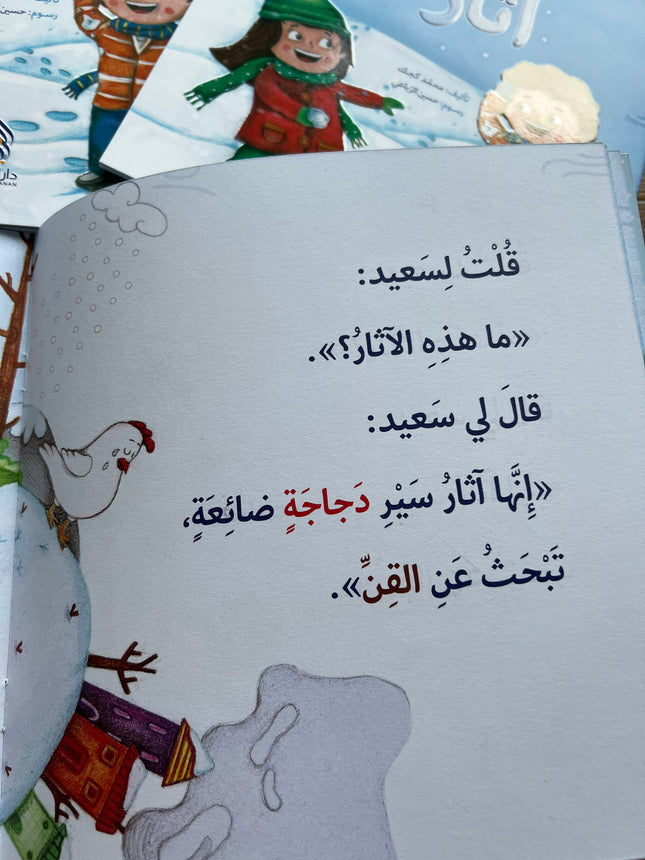 رسوم: حسين
آثار
تأليف: محمد كجك
رسوم: حسين الرفاعي
دار
ANAN
قُلْتُ لِسَعيد:
«ما هذِهِ الآثارُ؟».
قالَ لي سَعيد:
«إِنَّها آثارُ سَيْرِ دَجاجَةٍ ضائِعَةٍ،
تَبْحَثُ عَنِ القِنِّ».